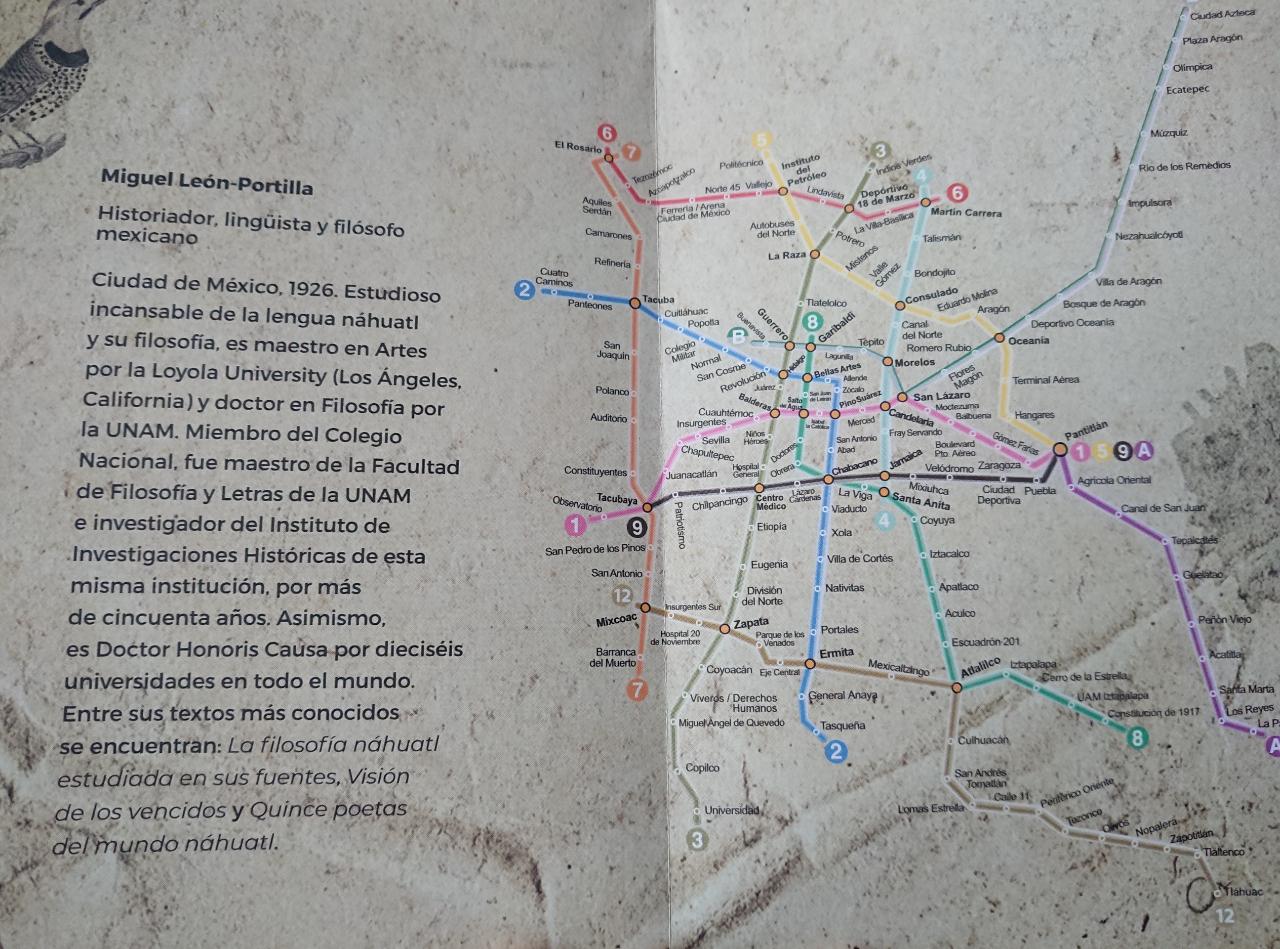 Miguel León-Portilla
Historiador, lingüista y filósofo
mexicano
Ciudad de México, 1926. Estudioso
incansable de la lengua náhuatl
y su filosofía, es maestro en Artes
por la Loyola University (Los Ángeles,
California) y doctor en Filosofía por
la UNAM. Miembro del Colegio
Nacional, fue maestro de la Facultad
de Filosofía y Letras de la UNAM
e investigador del Instituto de
Investigaciones Históricas de esta
misma institución, por más
de cincuenta años. Asimismo,
es Doctor Honoris Causa por dieciséis
universidades en todo el mundo.
Entre sus textos más conocidos
se encuentran: La filosofía náhuatl
estudiada en sus fuentes, Visión
de los vencidos y Quince poetas
del mundo náhuatl.
6
7
El Rosario
Tezozómoc
Azcapotzalco
Ferrería / Arena
Ciudad de México
Norte 45
Vallejo
Instituto
del
Petróleo
Lindavista
Deportivo
18 de Marzo
La Villa-Basílica
Martín Carrera
6
5
Politécnico
3
Indios Verdes
4
Aquiles
Serdán
Camarones
Refinería
Autobuses
del Norte
La Raza
Potrero
Misterios
Valle
Gómez
Talismán
Bondojito
Consulado
Eduardo Molina
Aragón
Oceanía
Canal
del Norte
Romero Rubio
Deportivo Oceanía
Bosque de Aragón
Villa de Aragón
Nezahualcóyotl
Impulsora
Río de los Remedios
Múzquiz
Ecatepec
Olímpica
Plaza Aragón
Ciudad Azteca
2
Cuatro
Caminos
Panteones
Tacuba
Cuitláhuac
Popotla
Colegio
Militar
Normal
San Cosme
Revolución
Hidalgo
Tlatelolco
Guerrero
Buenavista
B
8
Garibaldi
Lagunilla
Tepito
Morelos
Flores
Magón
San Lázaro
Terminal Aérea
Hangares
Bellas Artes
Allende
Zócalo
Juárez
Balderas
Salto
del Agua
San Juan
de Letrán
Isabel
la Católica
Pino Suárez
Merced
Candelaria
Moctezuma
Balbuena
Boulevard
Pto. Aéreo
Gómez Farías
Pantitlán
1
5
9
A
San
Joaquín
Polanco
Auditorio
Constituyentes
Tacubaya
Observatorio
1
9
Cuauhtémoc
Insurgentes
Sevilla
Chapultepec
Juanacatlán
Niños
Héroes
Hospital
General
Doctores
Obrera
San Antonio
Abad
Fray Servando
Chabacano
Jamaica
Velódromo
Zaragoza
Mixiuhca
Ciudad
Deportiva
Puebla
Patriotismo
Chilpancingo
Centro
Médico
Lázaro
Cárdenas
La Viga
Santa Anita
4
Agrícola Oriental
Canal de San Juan
Tepalcates
Guelatao
Peñón Viejo
Acatitla
Santa Marta
Los Reyes
La P
A
San Pedro de los Pinos
San Antonio
12
Mixcoac
Insurgentes Sur
Hospital 20
de Noviembre
Zapata
Parque de los
Venados
Eje Central
Ermita
Mexicaltzingo
Atlalilco
Barranca
del Muerto
7
Etiopía
Eugenia
División
del Norte
Coyoacán
Viveros / Derechos
Humanos
Miguel Ángel de Quevedo
Copilco
Universidad
3
Viaducto
Xola
Villa de Cortés
Nativitas
Portales
General Anaya
Tasqueña
2
Coyuya
Iztacalco
Apatlaco
Aculco
Escuadrón 201
Iztapalapa
Cerro de la Estrella
UAM Iztapalapa
Constitución de 1917
8
Culhuacán
San Andrés
Tomatlán
Lomas Estrella
Calle 11
Periférico Oriente
Tezonco
Olivos
Nopalera
Zapotitlán
Tlaltenco
Tláhuac
12